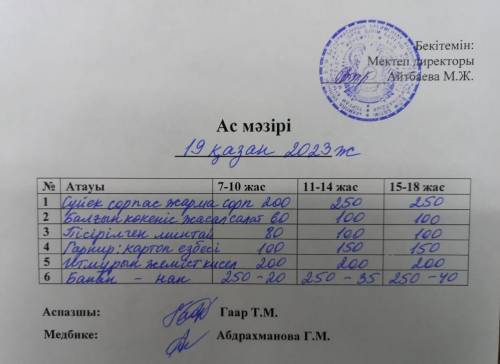 Бекітемін:
Мектеп директоры
Айтбаева М.Ж.
Ас мәзірі
19 қазан 2023ж
№ Атауы 7-10 жас 11-14 жас 15-18 жас
1 Сүйек сорпас жарма сорп 200 250 250
2 Балғын көкеніс жасал салат 60 100 100
3 Пісірілген минтай 80 100 100
4 Гарнир: картоп езбесі 100 150 150
5 Итмұрын жеміст кисел 200 200 200
6 Банан - нан 250-20 250-35 250-40
Аспазшы: Гаар Т.М.
Медбике: Абдрахманова Г.М.